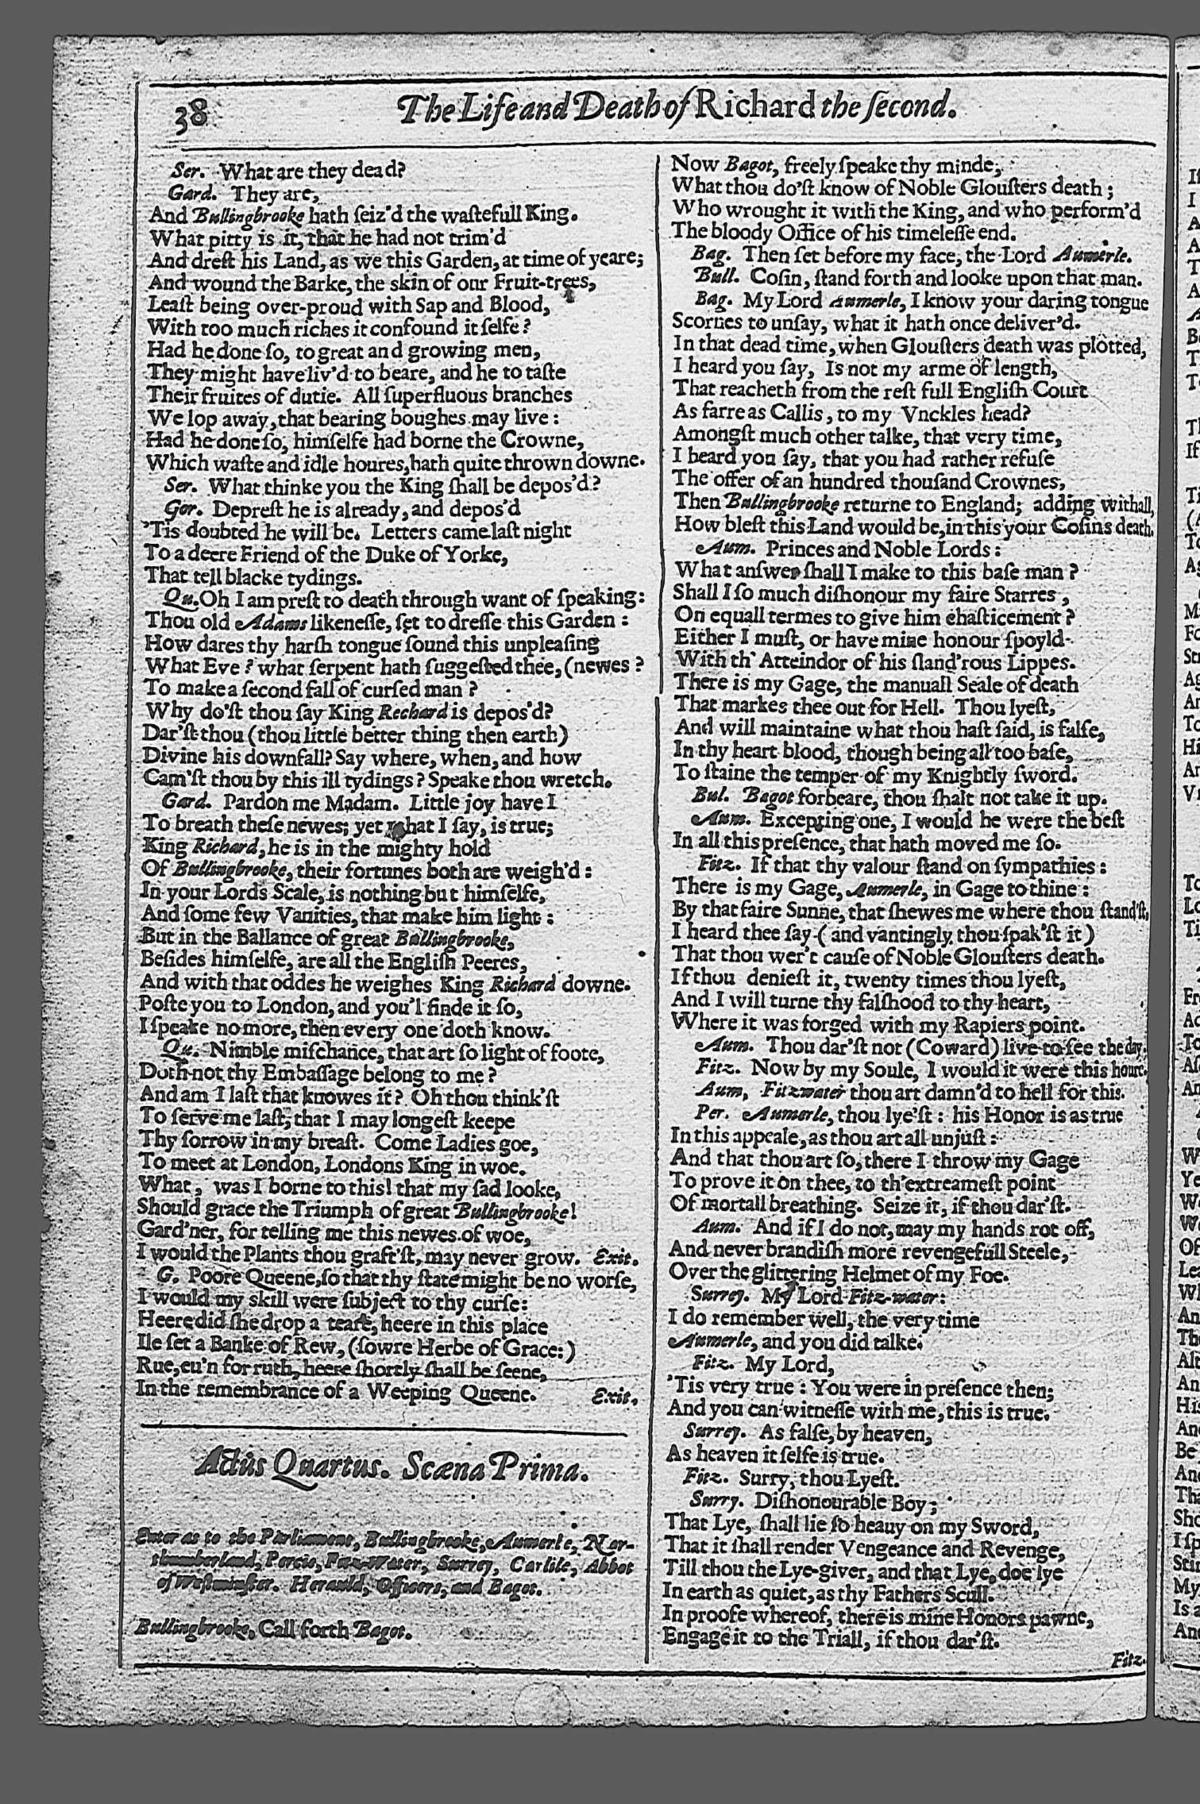 38
The Life and Death of Richard the ſecond.
Ser. What are they dead?
Gard. They are,
And Bullingbrooke hath ſeiz'd the waſtefull King.
What pitty is it, that he had not trim'd
And dreſt his Land, as we this Garden, at time of yeare;
And wound the Barke, the skin of our Fruit-trees,
Leaſt being over-proud with Sap and Blood,
With too much riches it confound it ſelfe?
Had he done ſo, to great and growing men,
They might have liv'd to beare, and he to taſte
Their fruites of dutie. All ſuperfluous branches
We lop away, that bearing boughes may live:
Had he done ſo, himſelfe had borne the Crowne,
Which waſte and idle houres, hath quite thrown downe.
Ser. What thinke you the King ſhall be depos'd?
Gor. Depreſt he is already, and depos'd
'Tis doubted he will be. Letters came laſt night
To a deere Friend of the Duke of Yorke,
That tell blacke tydings.
Qu. Oh I am preſt to death through want of ſpeaking:
Thou old Adams likeneſſe, ſet to dreſſe this Garden:
How dares thy harſh tongue ſound this unpleaſing
What Eve? what ſerpent hath ſuggeſted thee, (newes?
To make a ſecond fall of curſed man?
Why do'ſt thou ſay King Rechard is depos'd?
Dar'ſt thou (thou little better thing then earth)
Divine his downfall? Say where, when, and how
Cam'ſt thou by this ill tydings? Speake thou wretch.
Gard. Pardon me Madam. Little joy have I
To breath theſe newes; yet what I ſay, is true;
King Richard, he is in the mighty hold
Of Bullingbrooke, their fortunes both are weigh'd:
In your Lords Scale, is nothing but himſelfe,
And ſome few Vanities, that make him light:
But in the Ballance of great Bullingbrooke,
Beſides himſelfe, are all the Engliſh Peeres,
And with that oddes he weighes King Richard downe.
Poſte you to London, and you'l finde it ſo,
I ſpeake no more, then every one doth know.
Qu. Nimble miſchance, that art ſo light of foote,
Doth not thy Embaſſage belong to me?
And am I laſt that knowes it? Oh thou think'ſt
To ſerve me laſt, that I may longeſt keepe
Thy ſorrow in my breaſt. Come Ladies goe,
To meet at London, Londons King in woe.
What, was I borne to this! that my ſad looke,
Should grace the Triumph of great Bullingbrooke!
Gard'ner, for telling me this newes of woe,
I would the Plants thou graft'ſt, may never grow. Exit.
G. Poore Queene, ſo that thy ſtate might be no worſe,
I would my skill were ſubject to thy curſe:
Heere did ſhe drop a teare, heere in this place
Ile ſet a Banke of Rew, (ſowre Herbe of Grace:)
Rue, eu'n for ruth, heere ſhortly ſhall be ſeene,
In the remembrance of a Weeping Queene. Exit.
Actus Quartus. Scæna Prima.
Enter as to the Parliament, Bullingbrooke, Aumerle, Nor-
thumberland, Percie, Fitz-Water, Surrey, Carlile, Abbot
of Weſtminſter. Herauld, Officers, and Bagot.
Bullingbrooke, Call forth Bagot.
Now Bagot, freely ſpeake thy minde,
What thou do'ſt know of Noble Glouſters death;
Who wrought it with the King, and who perform'd
The bloody Office of his timeleſſe end.
Bag. Then ſet before my face, the Lord Aumerle.
Bull. Coſin, ſtand forth and looke upon that man.
Bag. My Lord Aumerle, I know your daring tongue
Scornes to unſay, what it hath once deliver'd.
In that dead time, when Glouſters death was plotted,
I heard you ſay, Is not my arme of length,
That reacheth from the reſt full Engliſh Court
As farre as Callis, to my Vnckles head?
Amongſt much other talke, that very time,
I heard you ſay, that you had rather refuſe
The offer of an hundred thouſand Crownes,
Then Bullingbrooke returne to England; adding withall,
How bleſt this Land would be, in this your Coſins death.
Aum. Princes and Noble Lords:
What anſwer ſhall I make to this baſe man?
Shall I ſo much diſhonour my faire Starres,
On equall termes to give him chaſticement?
Either I muſt, or have mine honour ſpoyld
With th' Atteindor of his ſland'rous Lippes.
There is my Gage, the manuall Seale of death
That markes thee out for Hell. Thou lyeſt,
And will maintaine what thou haſt ſaid, is falſe,
In thy heart blood, though being all too baſe,
To ſtaine the temper of my Knightly ſword.
Bul. Bagot forbeare, thou ſhalt not take it up.
Aum. Excepting one, I would he were the beſt
In all this preſence, that hath moved me ſo.
Fitz. If that thy valour ſtand on ſympathies:
There is my Gage, Aumerle, in Gage to thine:
By that faire Sunne, that ſhewes me where thou ſtand'ſt,
I heard thee ſay (and vantingly thou ſpak'ſt it)
That thou wer't cauſe of Noble Glouſters death.
If thou denieſt it, twenty times thou lyeſt,
And I will turne thy falſhood to thy heart,
Where it was forged with my Rapiers point.
Aum. Thou dar'ſt not (Coward) live to ſee the day.
Fitz. Now by my Soule, I would it were this houre.
Aum, Fitzwater thou art damn'd to hell for this.
Per. Aumerle, thou lye'ſt: his Honor is as true
In this appeale, as thou art all unjuſt:
And that thou art ſo, there I throw my Gage
To prove it on thee, to th'extreameſt point
Of mortall breathing. Seize it, if thou dar'ſt.
Aum. And if I do not, may my hands rot off,
And never brandiſh more revengefull Steele,
Over the glittering Helmet of my Foe.
Surrey. My Lord Fitz-water:
I do remember well, the very time
Aumerle, and you did talke.
Fitz. My Lord,
'Tis very true: You were in preſence then;
And you can witneſſe with me, this is true.
Surrey. As falſe, by heaven,
As heaven it ſelfe is true.
Fitz. Surry, thou Lyeſt.
Surry. Diſhonourable Boy;
That Lye, ſhall lie ſo heavy on my Sword,
That it ſhall render Vengeance and Revenge,
Till thou the Lye-giver, and that Lye, doe lye
In earth as quiet, as thy Fathers Scull.
In proofe whereof, there is mine Honors pawne,
Engage it to the Triall, if thou dar'ſt.
Fitz.